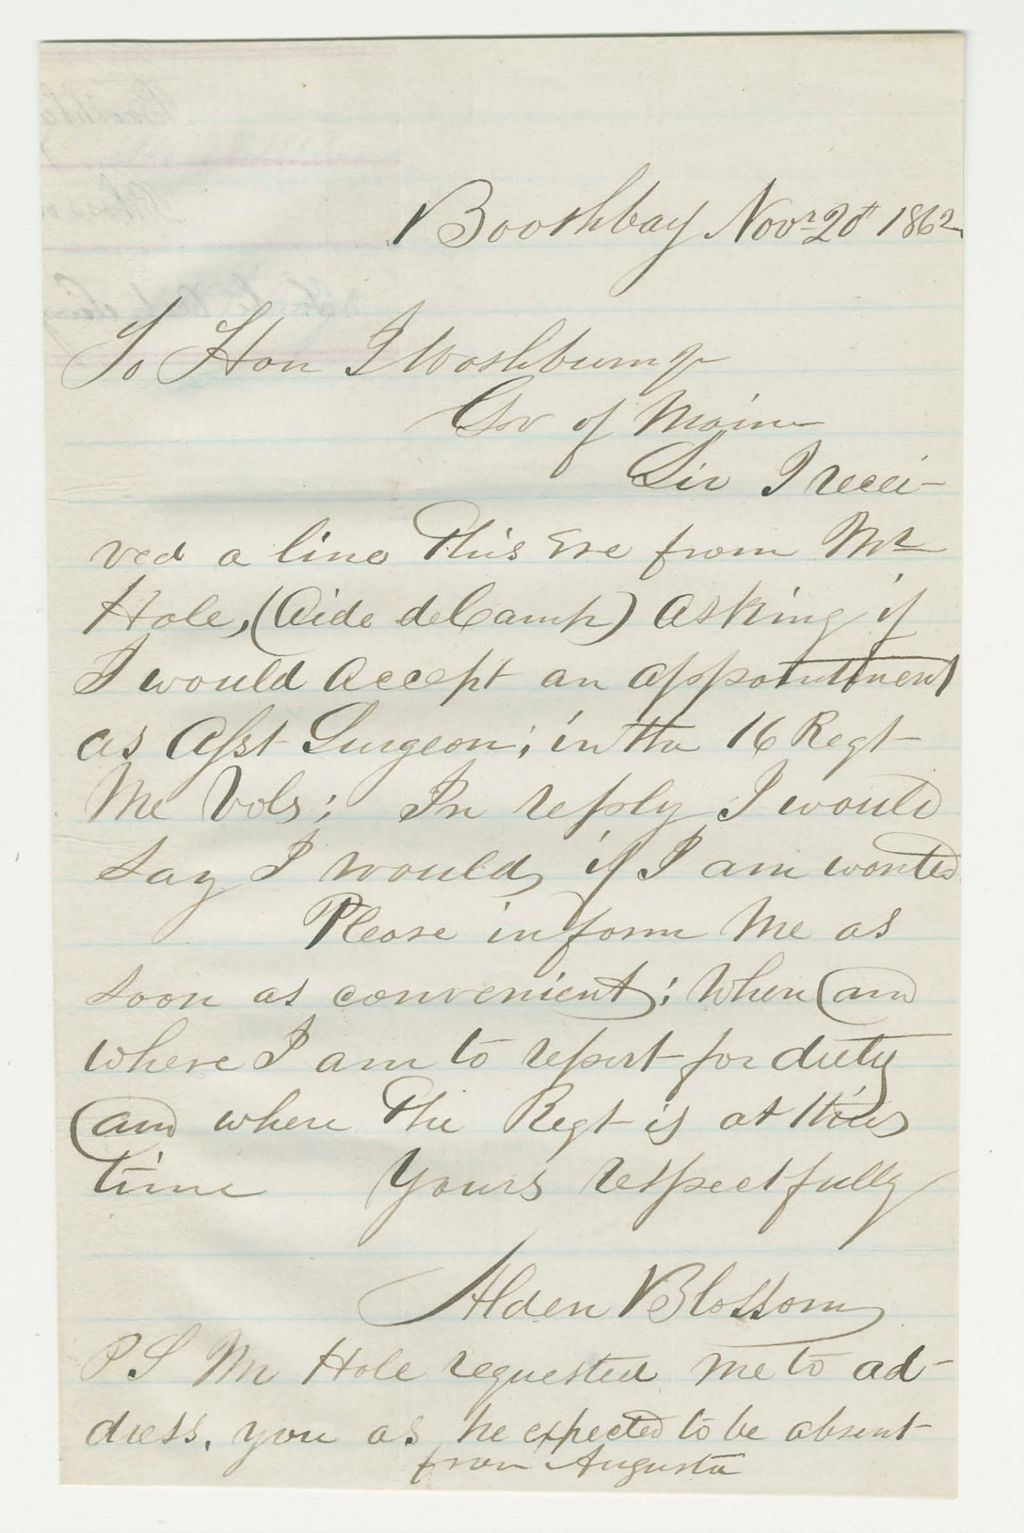 Boothbay Novr 20t 1862
To Hon I Washburn Jr
Gov of Maine
Sir I recei-
ved a line this Eve from Mr
Hole, (Aide deCamp) Asking if
I would Accept an appointment
as Asst Surgeon; in the 16 Regt
Me Vols; In reply I would
say I would, if I am wanted
Please inform Me as
soon as convenient; When and
where I am to report for duty
and where the Regt is at this
time Yours respectfully
Alden Blossom
P S Mr Hole requested me to ad-
dress, you as he expected to be absent
from Augusta